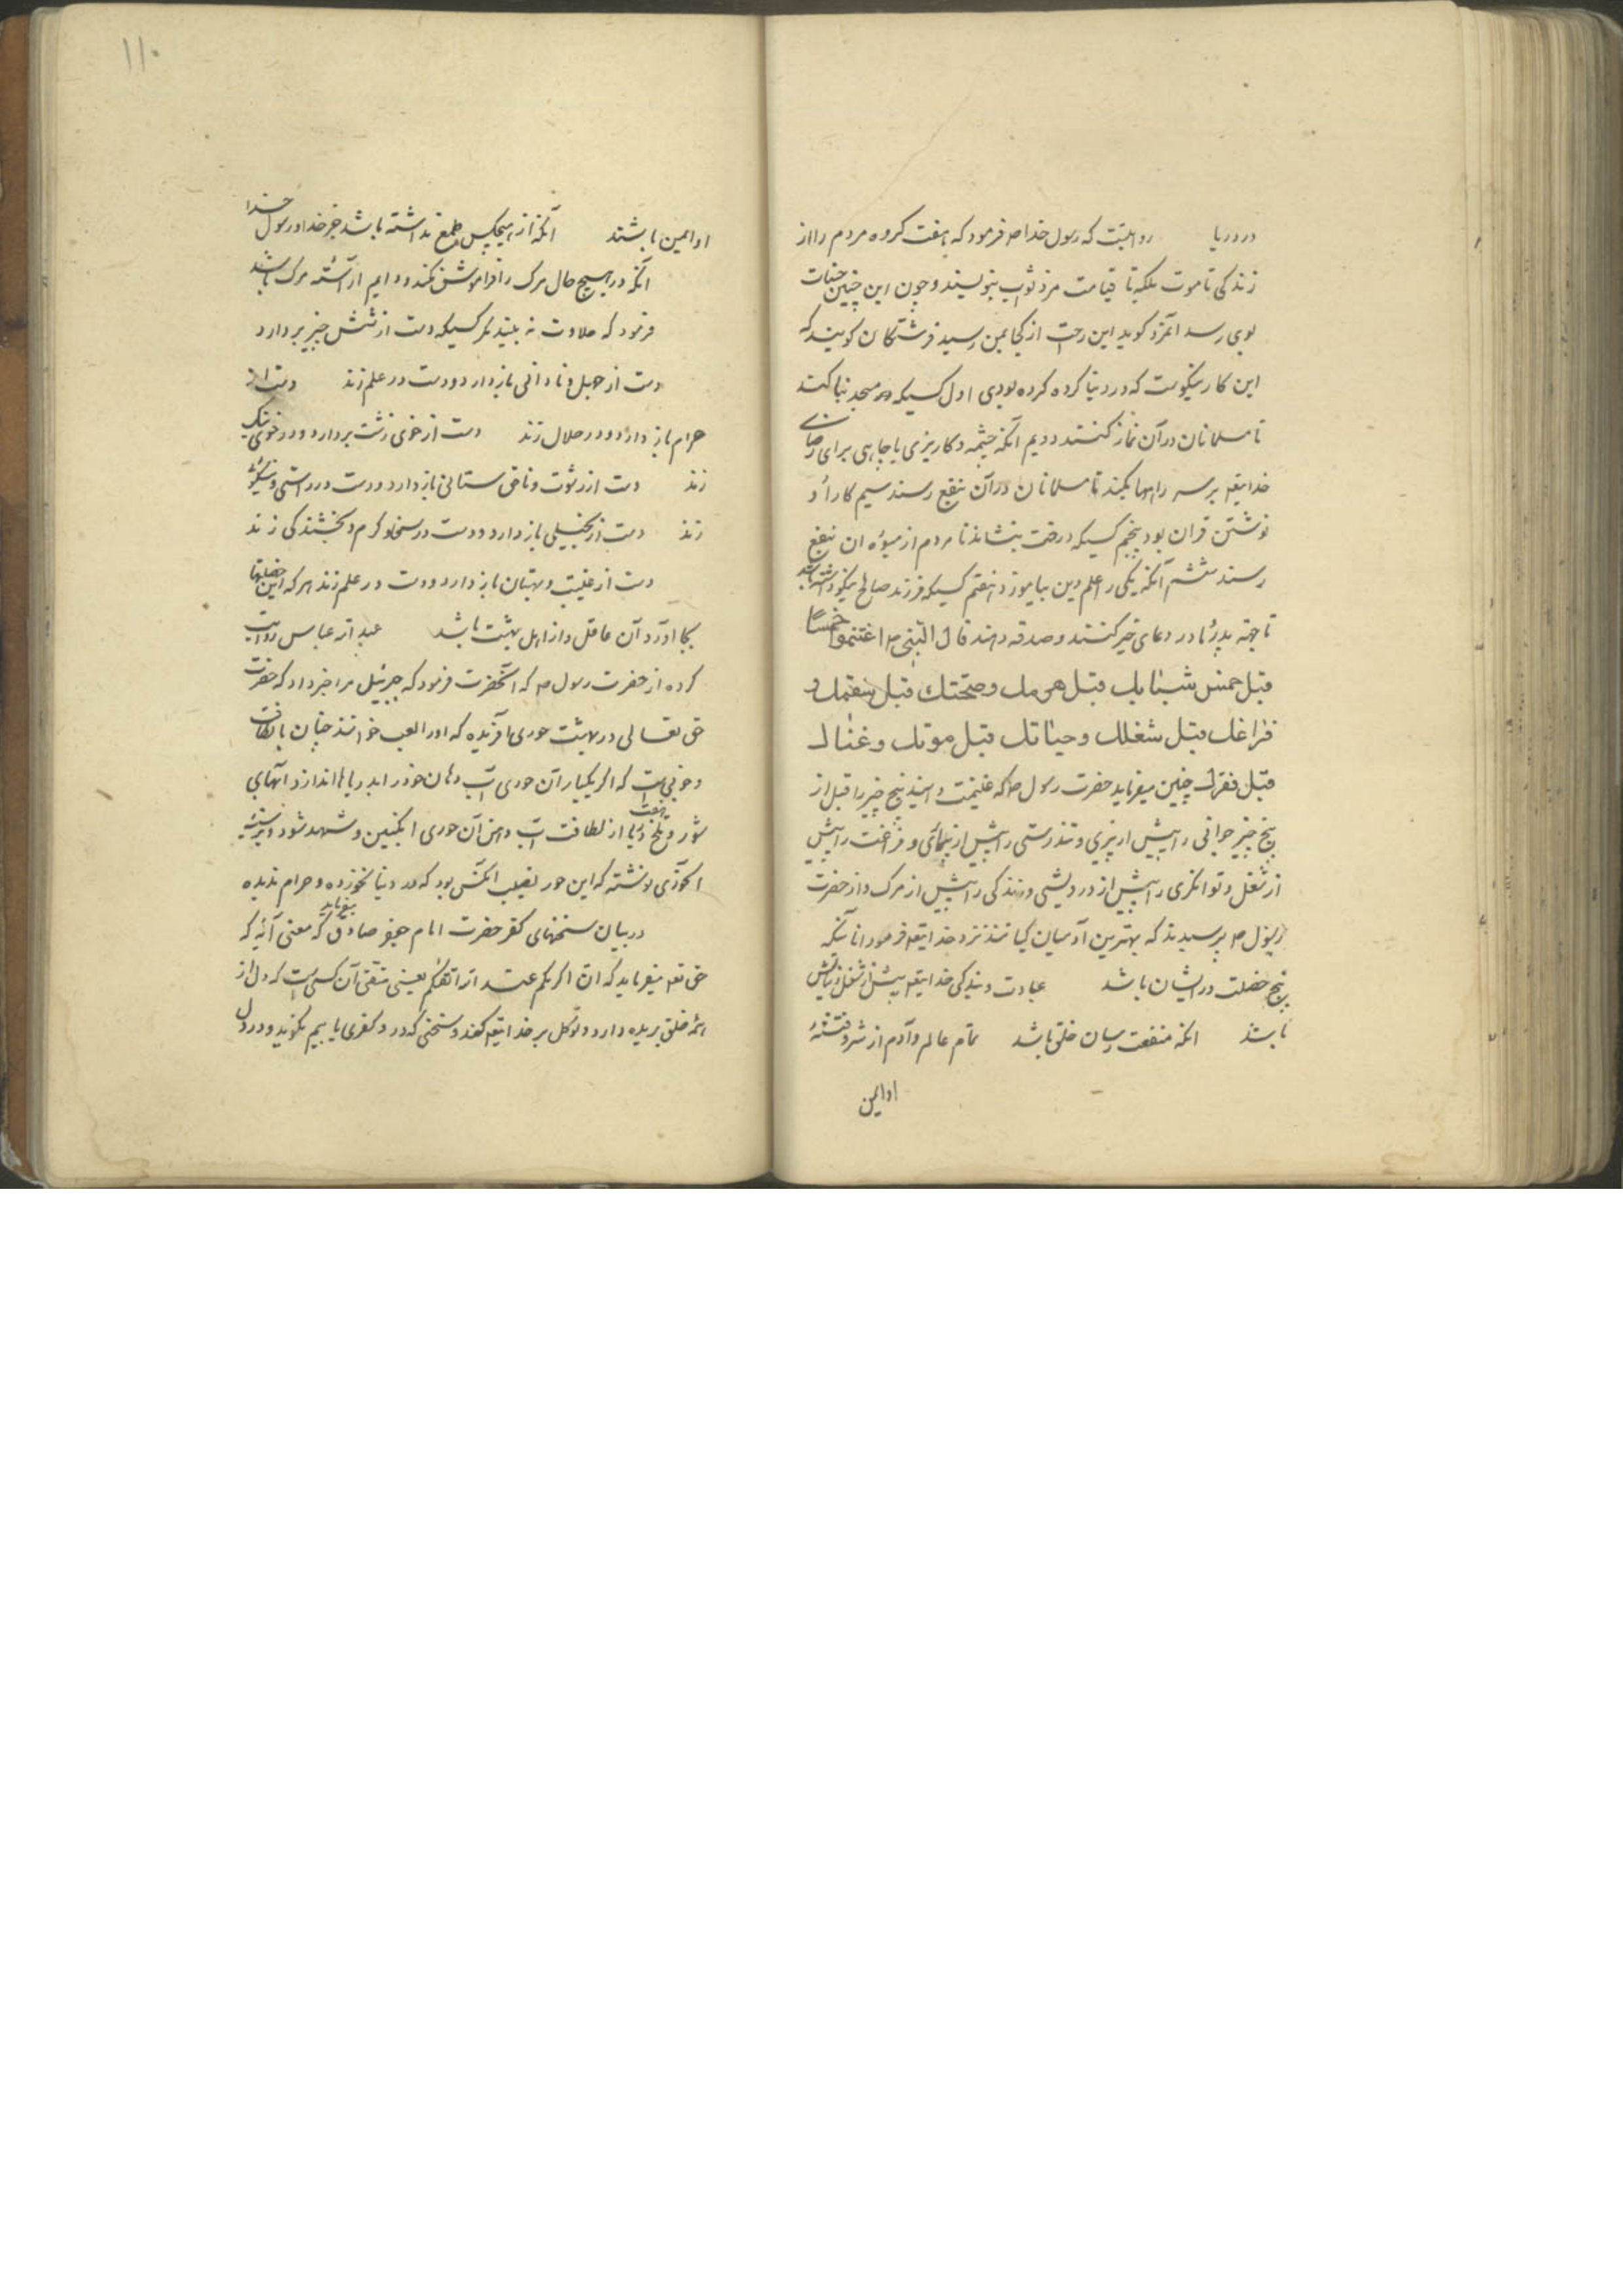 در دریا روایتست که رسول خدا ص فرمود که هفت کروه مردم را از
زندکی تا موت بلکه تا قیامت مزد ثواب بنویسند و چون این چنین حسنات
بوی رسد آنمرد کوید این رحمت از کجا بمن رسید فرشتکان کویند که
این کار نیکوست که در دنیا کرده کرده بودی اول کسیکه در مسجد بنا کند
تا مسلمانان در آن نماز کنند دویم آنکه چشمه و کاریزی یا چاهی برای رضای
خدایتعه بر سر راهها بکند تا مسلمانان در آن نفع رسند سیم کار او
نوشتن قران بود پنجم کسیکه درخت بنشاند تا مردم از میوه ان نفع
رسند ششم آنکه یکی را علم دین بیاموزد هفتم کسیکه فرزند صالح نیکو داشته باشد
تا جهة پدر و مادر دعای خیر کنند و صدقه دهند قال النبی ص اغتنموا خمسًا
قبل خمس شبابک قبل هرمک وصحّتک قبل سقمک و
فراغک قبل شغلک وحیاتک قبل موتک وغناک
قبل فقرک چنین میفرماید حضرت رسول ص که غنیمت دانید پنج چیز را قبل از
پنج چیز جوانی را پیش از پیری و تندرستی را پیش از بیماری و فراغت را پیش
از شغل و توانکری را پیش از درویشی و زندکی را پیش از مرک و از حضرت
رسول ص پرسیدند که بهترین آدمیان کیانند نزد خدایتعه فرمود انانکه
پنج خصلت در ایشان باشد عبادت و بندکی خدایتعه بیش از شغل دنیاش
باشد انکه منفعت رسان خلق باشد تمام عالم و آدم از شر و فتنهٔ
او ایمن
۱۱۰
او ایمن باشند آنکه از هیچکس طمع نداشته باشد جز خدا و رسول خدا
آنکه در هیچ حال مرک را فراموش نکند و دایم اراسته مرک باشد
فرمود که حلاوت نه بیند مکر کسیکه دست از شش چیز بردارد
دست از جهل و نادانی باز دارد و دست در علم زند دست از
حرام باز دارد و در حلال زند دست از خوی زشت بردارد و در خوی نیک
زند دست از رشوت و ناحق ستانی باز دارد و دست در راستی و نیکوئی
زند دست از بخیلی باز دارد و دست در سخا و کرم و بخشندکی زند
دست از غیبت و بهتان باز دارد و دست در علم زند هر که این خصلتها
بجا اورد آن عاقل و از اهل بهشت باشد عبد الله عباس روایت
کرده از حضرت رسول ص که آنحضرت فرمود که جبرئیل مرا خبر داد که حضرت
حق تعالی در بهشت حوری افریده که او را لعبه خوانند چنان با لطافت
و خوبی است که اکر یکبار آن حوری آب دهان خود را به دریاها اندازد آبهای
شور و تلخ هفت دریا از لطافت آب دهن آن حوری انکبین و شهد شود و بر سینه
ان حوری نوشته که این حور نصیب انکس بود که در دنیا نخورده و حرام ندیده
در بیان سخنهای کفر حضرت امام جعفر صادق میفرماید که معنی آیه که
حق تعه میفرماید که انّ اکرمکم عند الله اتقیکم یعنی متقی آن کسی است که دل از
همه خلق بریده دارد و توکل بر خدایتعه کند و سخنی که در و کفری یا بیم نکوید و در دل